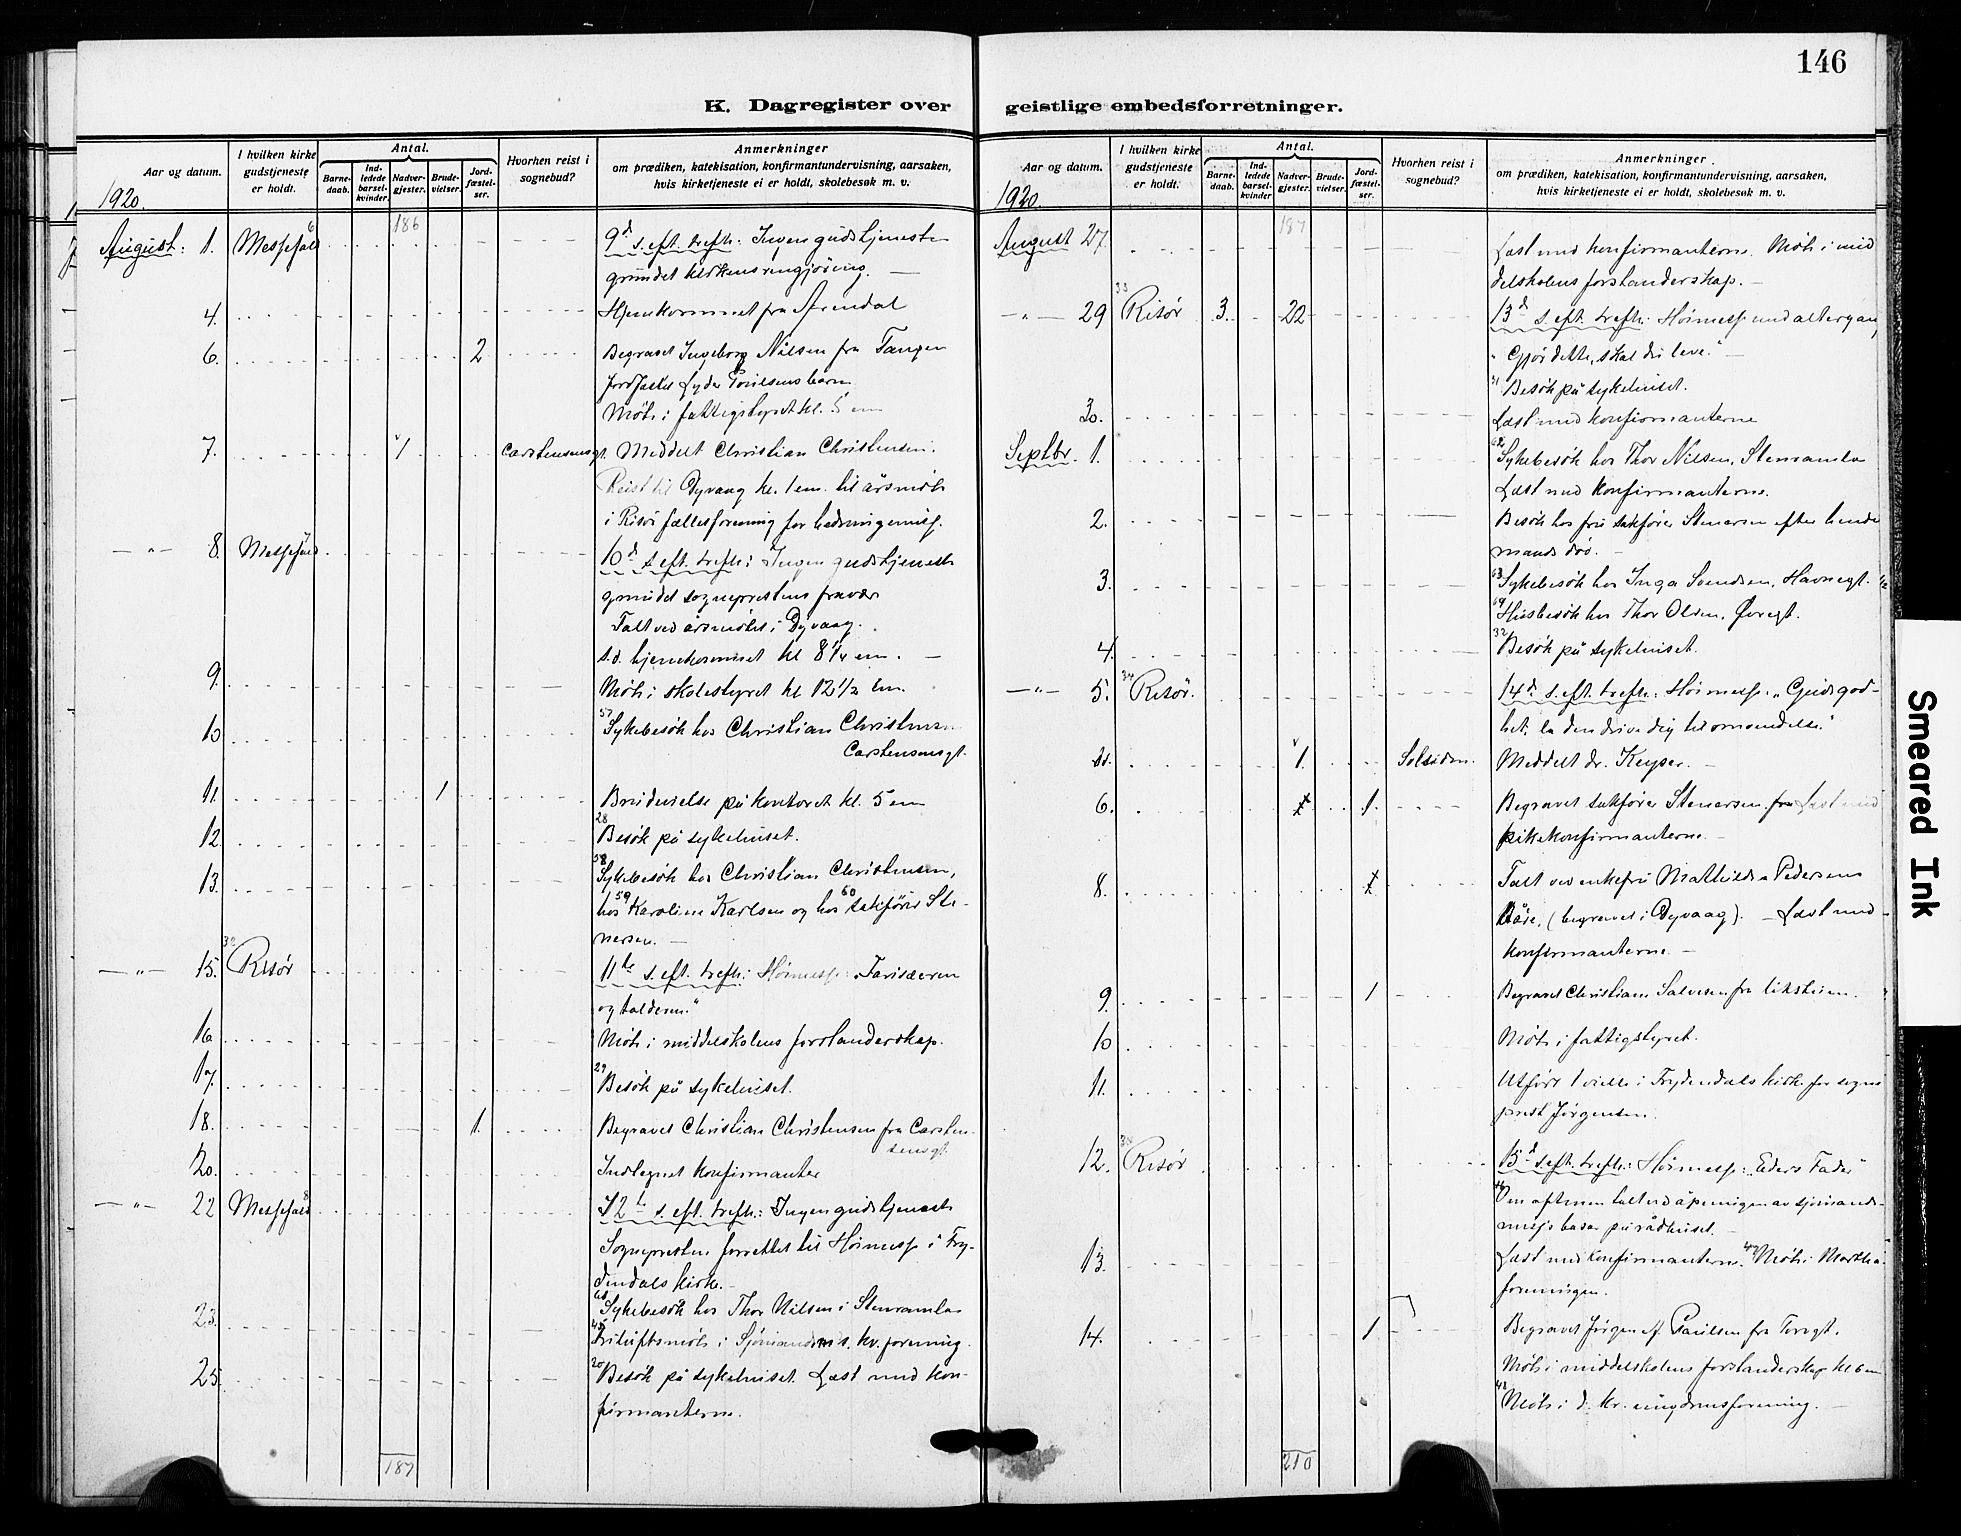 146
K. Dagregister over geistlige embedsforretninger.
Aar og datum.
I hvilken kirke gudstjeneste er holdt.
Antal.
Barne-daab.
Ind-ledede barsel-kvinder.
Nadver-gjester.
Brude-vielser.
Jord-fæstel-ser.
Hvorhen reist i sognebud?
Anmerkninger
om prædiken, katekisation, konfirmantundervisning, aarsaken,
hvis kirketjeneste ei er holdt, skolebesøk m. v.
1920.
186
August: 1. Messefald 6 9d s. eft. trefh: Ingen gudstjeneste
grundet kirkens rengjøring. —
4. Hjemkommet fra Arendal
6. 2 Begravet Ingeborg Nilsen fra Tangen
Jordfæstet Lyder Poulsens barn
Møte i fattigstyret kl. 5 em
7. 1 Carstensensgt. Meddelt Christian Christensen.
Reist til Dyvaag kl. 1 em. til årsmøte
i Risør fællesforening for hedningemisj.
— " — 8. Messefald 7 10d s. eft. trefh: Ingen gudstjeneste
grundet sogneprestens fravær
Talt ved årsmøtet i Dyvaag.
s.d. hjemkommet kl 8 1/4 em. —
9. Møte i skolestyret kl 12 1/2 em.
10 57 Sykebesøk hos Christian Christensen
Carstensensgt.
11. 1 Brudevielse på kontoret kl. 5 em
12. 28 Besøk på sykehuset.
13. 58 Sykebesøk hos Christian Christensen,
hos 59 Karoline Karlsen og hos 60 sakfører Ste-
nersen. —
— " — 15. 32 Risør 11te s. eft. trefh: Høimesse: "Farisæeren
og tolderen."
16. Møte i middelskolens forstanderskap.
17. 29 Besøk på sykehuset.
18. 1. Begravet Christian Christensen fra Carsten-
sensgt.
20. Indtegnet konfirmanter
— " — 22 Messefald 8 12te s. eft. trefh: Ingen gudstjeneste
Sognepresten forrettet til Høimesse i Fry-
dendals kirke. —
23. 61 Sykebesøk hos Thor Nilsen i Stenramla
45 Friluftsmøte i Sjømandsm. kv. forening.
25. 20 Besøk på sykehuset. Læst med kon-
firmanterne.
187
Aar og datum.
I hvilken kirke gudstjeneste er holdt.
Antal.
Barne-daab.
Ind-ledede barsel-kvinder.
Nadver-gjester.
Brude-vielser.
Jord-fæstel-ser.
Hvorhen reist i sognebud?
Anmerkninger.
om prædiken, katekisation, konfirmantundervisning, aarsaken,
hvis kirketjeneste ei er holdt, skolebesøk m. v.
1920.
187
August 27. Læst med konfirmanterne. Møte i mid
delskolens forstanderskap. —
— " — 29 33 Risør 3. 22 13d s. eft. trefh: Høimesse med altergan
"Gjør dette, skal du leve." —
31 Besøk på sykehuset.
30. Læst med konfirmanterne
Septbr. 1. 62 Sykebesøk hos Thor Nilsen, Stenramla
Læst med konfirmanterne.
2. Besøk hos fru sakfører Stenersen efter hendes
mands død. —
3. 63 Sykebesøk hos Inga Svendsen, Havnegt.
64 Husbesøk hos Thor Olsen, Øvregt.
4. 32 Besøk på sykehuset.
— " — 5. 34 Risør. 14d s. eft. trefh: Høimesse: "Guds god-
het, la den drive dig til omvendelse."
s.d. 1. Solsiden. Meddelt dr. Keyser. —
6. 1. Begravet sakfører Stenersen. Læst med
pikekonfirmanterne. —
8. Talt ved enkefru Mathilde Pedersens
båre, (begravet i Dyvaag). — Læst med
konfirmanterne. —
9. 1 Begravet Christiane Salvesen fra likstuen.
10 Møte i fattigstyret.
11. Utført 1 vielse i Frydendals kirke for sogne
prest Jørgensen.
12. Risør 15d s. eft. trefh: Høimesse: "Eders Fader"
46 Om aftenen talt ved åpningen av sjømands-
misjs basar på rådhuset. —
13. Læst med konfirmanterne. 47 Møte i Martha
foreningen.
14. 1 Begravet Jørgen A. Paulsen fra Torvgt.
Møte i middelskolens forstanderskap kl 6 em
48 Møte i d. kr. ungdomsforening. —
210
Smeared Ink